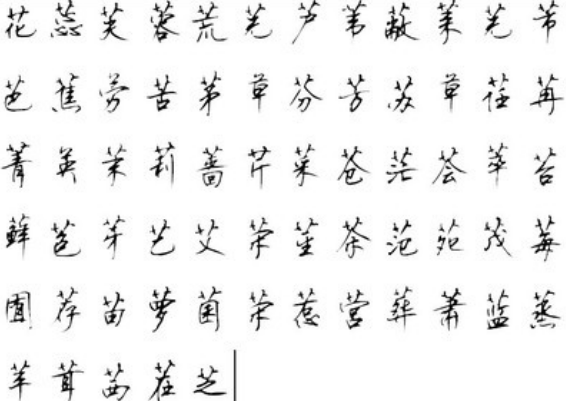 花蕊芙蓉荒芜芦苇蔽莱芜节
芭蕉劳苦茅草芬芳苏草荏苒
菁英茉莉蔷芹菜苍茫荟萃苔
藓苞芽艺艾荣笙茶范苑茂莓
荐苗萝菌荣惹营葬萧蓝蒸
芊茸茜茬芝